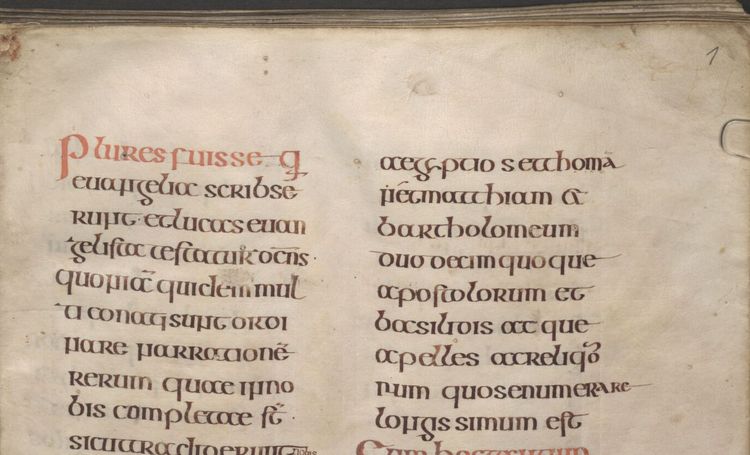 1
Plures fuisse q
euangelia scribse
runt et lucas euan
gelista testatur dicēns
quoniā quidem mul
ti conati sunt ordi
nare narrationē
rerum quae in no
bis completae st̄
sicut tradiderunt nobis
aegyptios et thomā
et matthiam &
bartholomeum
duodecim quoque
apostolorum et
basilidis atque
apelles ac reliqo
rum quos enumerare
longissimum est